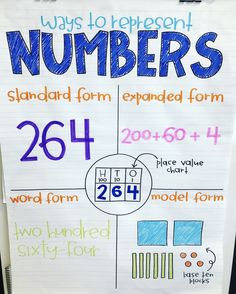 ways to represent
NUMBERS
standard form
264
expanded form
200+60+4
place value
chart
H T O
100 10 1
2 6 4
word form
two hundred
sixty-four
model form
base ten
blocks